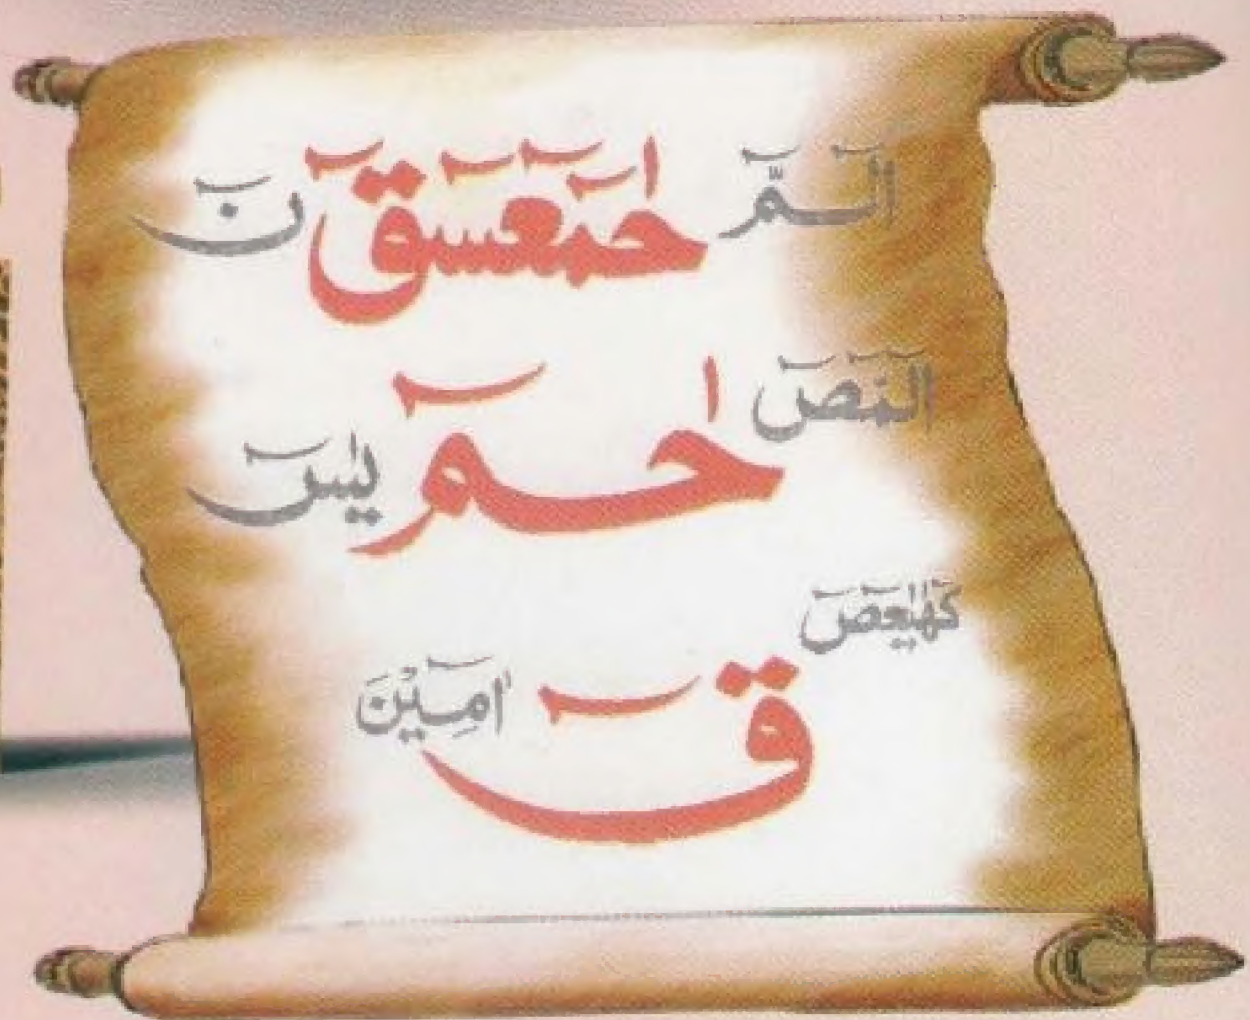 الٓمّٓ حٰمٓعٓسٓقٓ نٓ
الٓمٓصٓ حٰمٓ يٰسٓ
كٓهٰيٰعٓصٓ قٓ اٰمِيْنَ